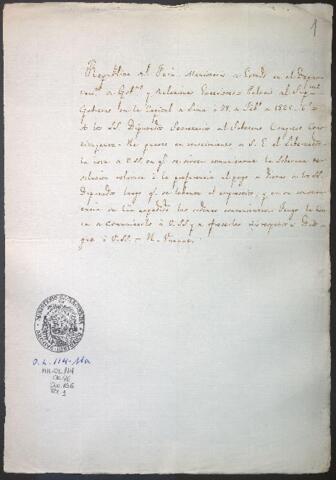 1
Republica del Perú. Ministerio de Estado en el Departa
mento de Gob.no y Relaciones Exteriores. Palacio del Sup.mo
Gobierno en la Capital de Lima á 28 de Feb.o de 1825. 6.o
A los SS. Diputados Secretarios del Soberano Congreso Cons
tituyente. He puesto en conocimiento de S. E. el Liberta
dor la nota de V.SS. en q.e se sirven comunicarme la Soberana re
solucion relativa á la preferencia del pago de dietas de los SS.
Diputados luego q.e se and en su
cia se han expedido las ordenes convenientes. Tengo la hon
ra de comunicarlo á V.SS. y de ofrecerles mi respeto. Dios
gue á V.SS. =
O.L. 114-11a
MH-OL 114
CAJ 6
DOC 186
FOL 1